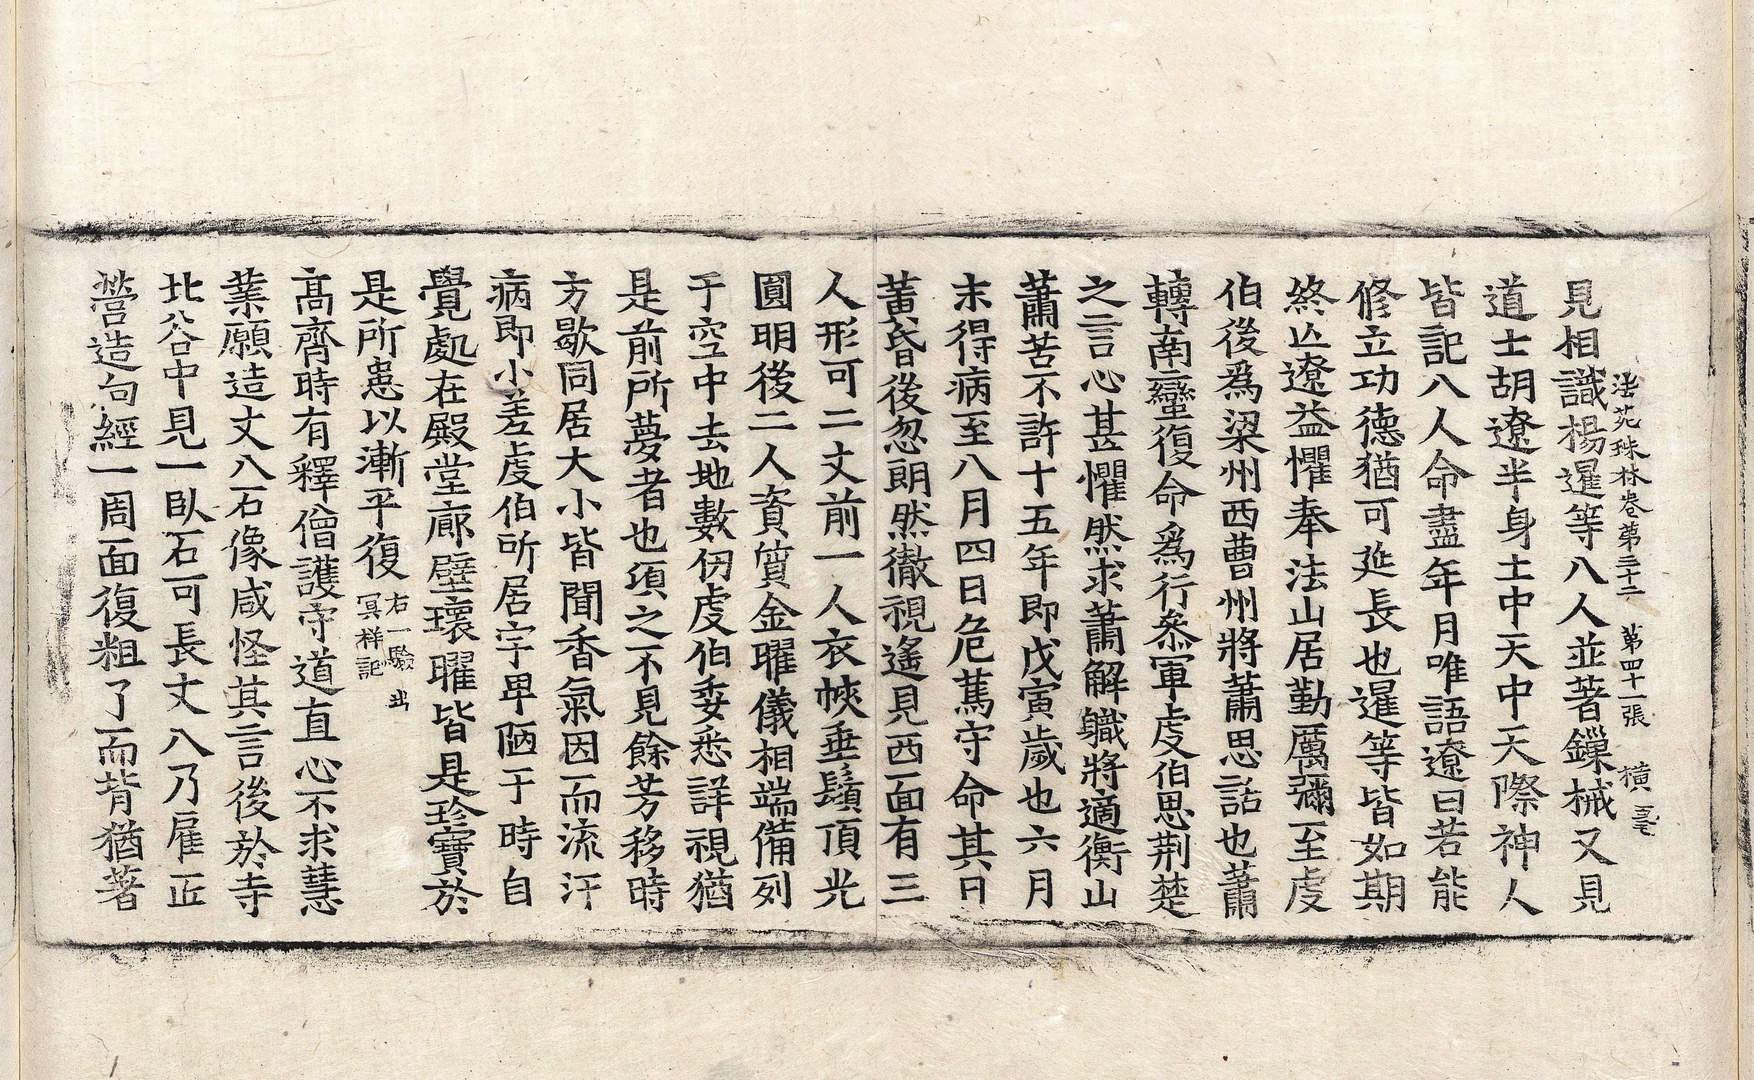 法苑珠林卷第三十二　第四十一張　橫
見相識楊暹等八人並著鏁械又見
道士胡遼半身土中天中天際神人
皆記八人命盡年月唯語遼曰若能
修立功德猶可延長也暹等皆如期
終亡遼益懼奉法山居勤厲彌至虔
伯後爲梁州西曹州將蕭思話也蕭
轉南蠻復命爲行叅軍虔伯思荆楚
之言心甚懼然求蕭解職將適衡山
蕭苦不許十五年即戊寅歲也六月
末得病至八月四日危篤守命其日
黃昏後忽朗然徹視遙見西面有三
人形可二丈前一人衣帢垂鬚頂光
圓明後二人資質金曜儀相端備列
于空中去地數仞虔伯委悉詳視猶
是前所夢者也須之不見餘芳移時
方歇同居大小皆聞香氣因而流汗
病即小差虔伯所居宇卑陋于時自
覺處在殿堂廊壁環曜皆是珍寶於
是所患以漸平復右一驗出
冥祥記
高齊時有釋僧護守道直心不求慧
業願造丈八石像咸怪其言後於寺
北谷中見一臥石可長丈八乃雇匠
營造向經一周面復粗了而背猶著